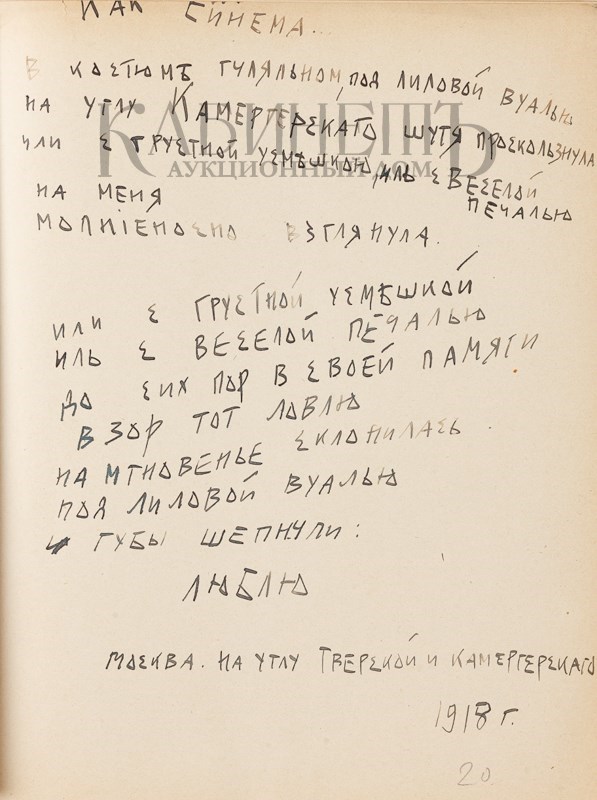 КАК СИНЕМА...
В КОСТЮМѢ ГУЛЯЛЬНОМ, ПОД ЛИЛОВОЙ ВУАЛЬЮ
НА УГЛУ КАМЕРГЕРСКАГО ШУТЯ ПРОСКОЛЬЗНУЛА
ИЛИ С ГРУСТНОЙ УСМѢШКОЮ, ИЛЬ С ВЕСЕЛОЙ
ПЕЧАЛЬЮ
НА МЕНЯ
МОЛНIЕНОСНО ВЗГЛЯНУЛА.
ИЛИ С ГРУСТНОЙ УСМѢШКОЙ
ИЛЬ С ВЕСЕЛОЙ ПЕЧАЛЬЮ
ДО СИХ ПОР В СВОЕЙ ПАМЯТИ
ВЗОР ТОТ ЛОВЛЮ
НА МГНОВЕНЬЕ СКЛОНИЛАСЬ
ПОД ЛИЛОВОЙ ВУАЛЬЮ
И ГУБЫ ШЕПНУЛИ:
ЛЮБЛЮ
МОСКВА. НА УГЛУ ТВЕРСКОЙ И КАМЕРГЕРСКАГО
1918 г.
20
КАБИНЕТЪ
АУКЦИОННЫЙ ДОМ